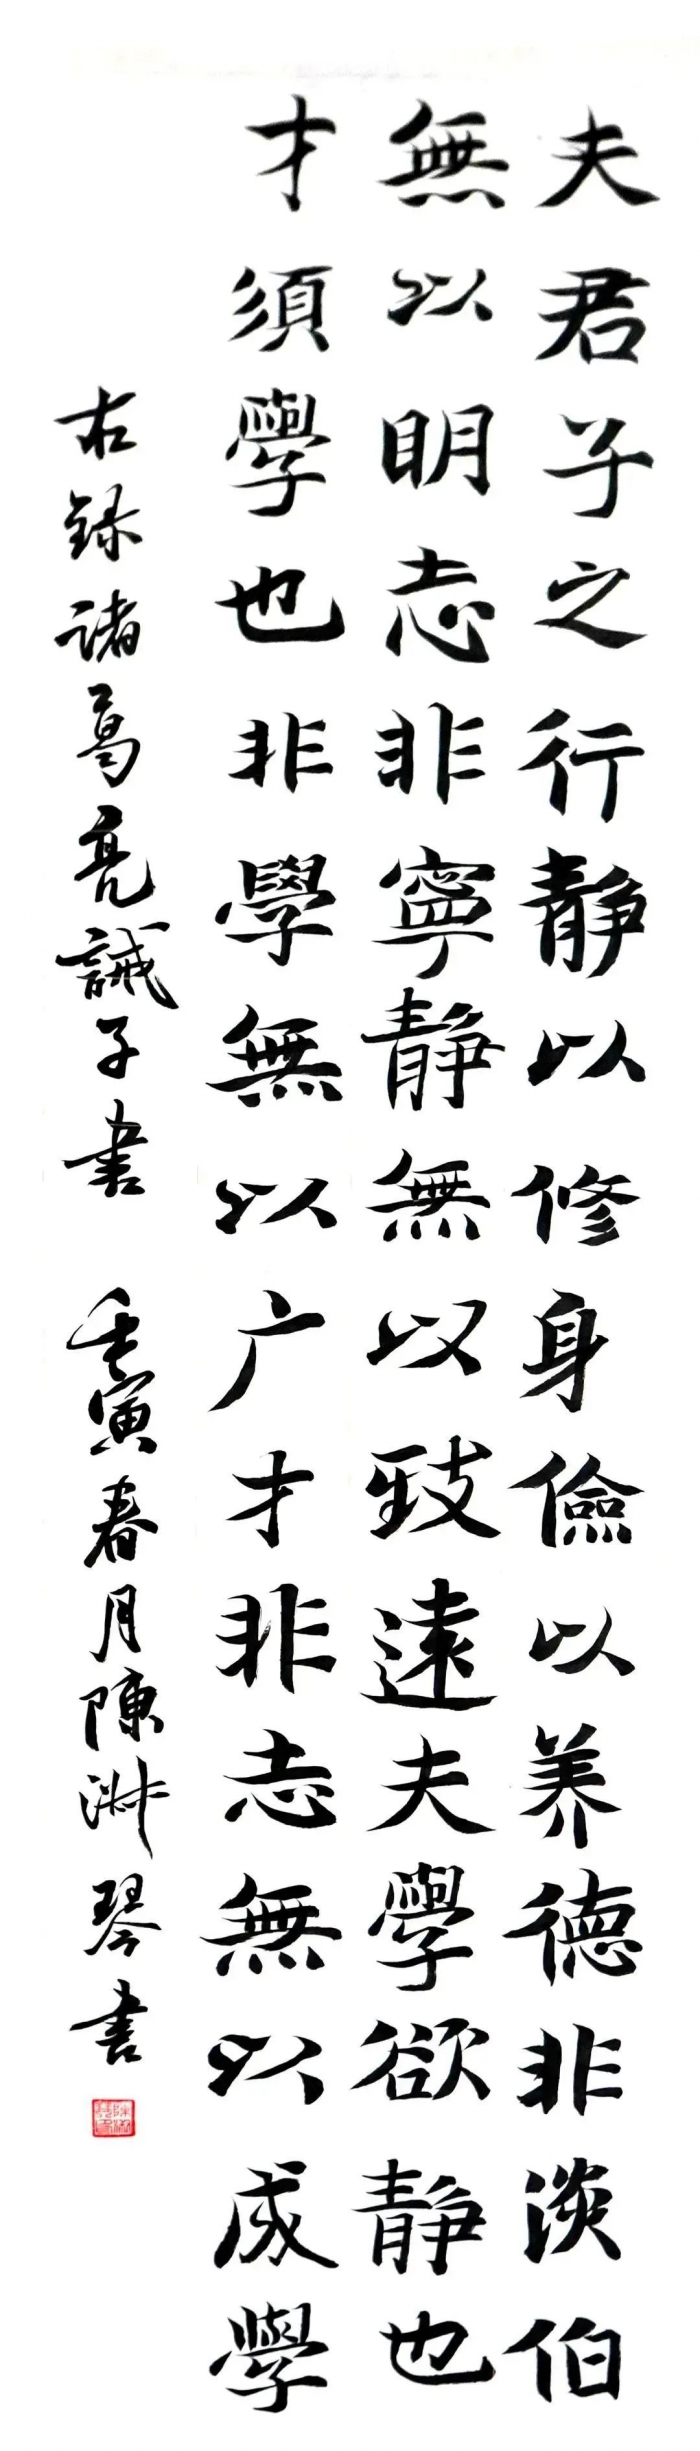 夫君子之行静以修身儉以养德非淡伯
無以明志非寧静無以致遠夫學欲静也
才須學也非學無以广才非志無以成學
右録诸葛亮誡子書 壬寅春月陳淑琴書